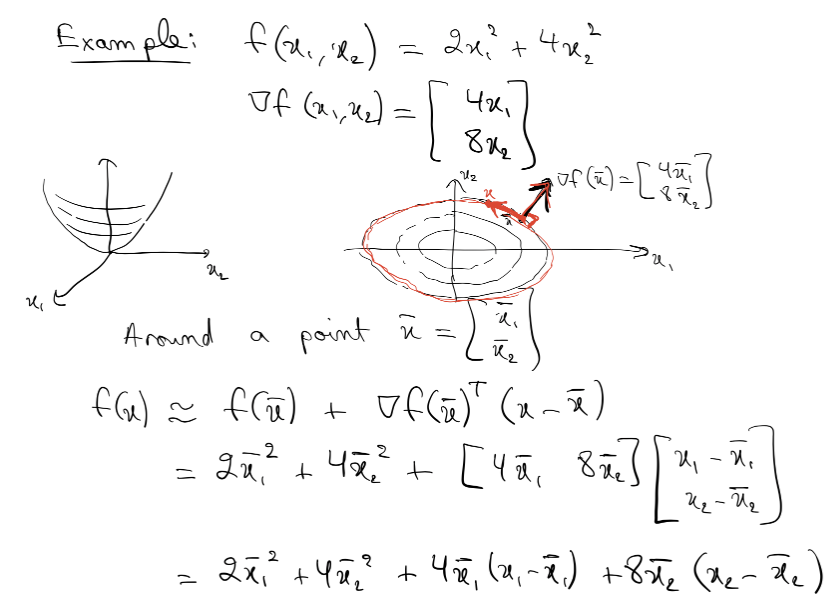 Example: f(x₁, x₂) = 2x₁² + 4x₂²
∇f(x₁, x₂) = [4x₁ 8x₂]
x₂
∇f(x̄) = [4x̄₁ 8x̄₂]
x
x̄
x₁
x₂
x₁
Around a point x̄ = [x̄₁ x̄₂]
f(x) ≈ f(x̄) + ∇f(x̄)ᵀ (x - x̄)
= 2x̄₁² + 4x̄₂² + [4x̄₁ 8x̄₂] [x₁ - x̄₁ x₂ - x̄₂]
= 2x̄₁² + 4x̄₂² + 4x̄₁ (x₁ - x̄₁) + 8x̄₂ (x₂ - x̄₂)